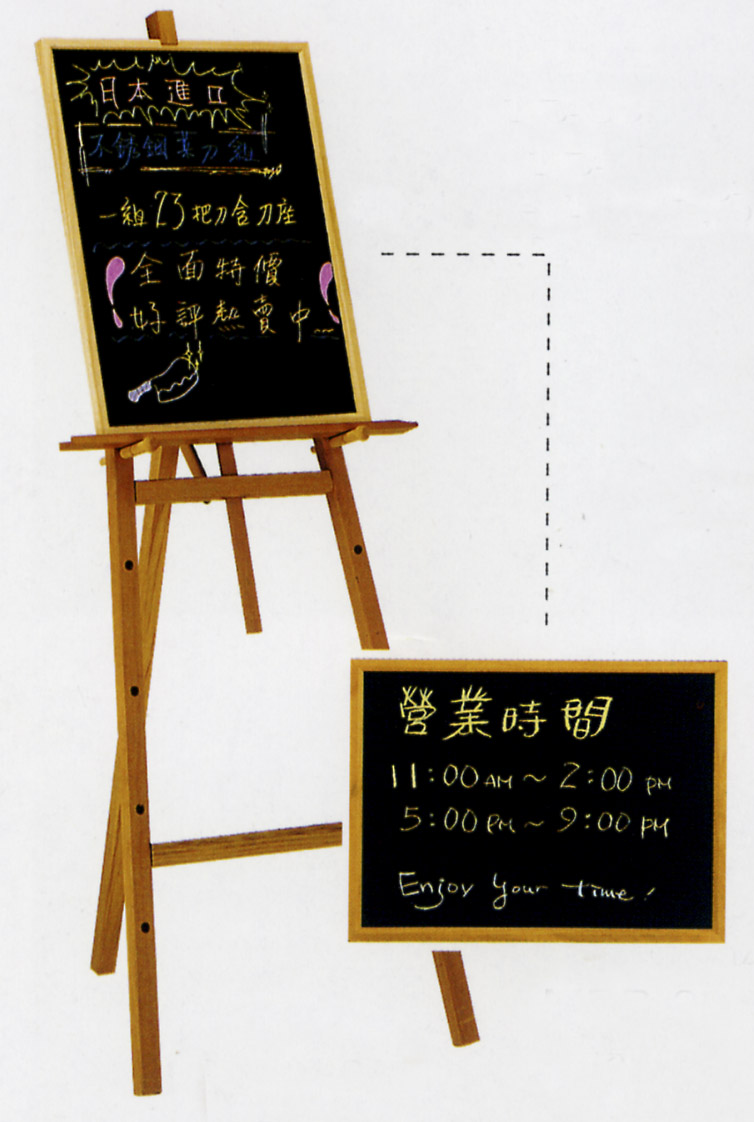 日本進口
不銹鋼菜刀組
一組23把刀含刀座
全面特價
好評熱賣中
營業時間
11:00 AM ~ 2:00 PM
5:00 PM ~ 9:00 PM
Enjoy your time!